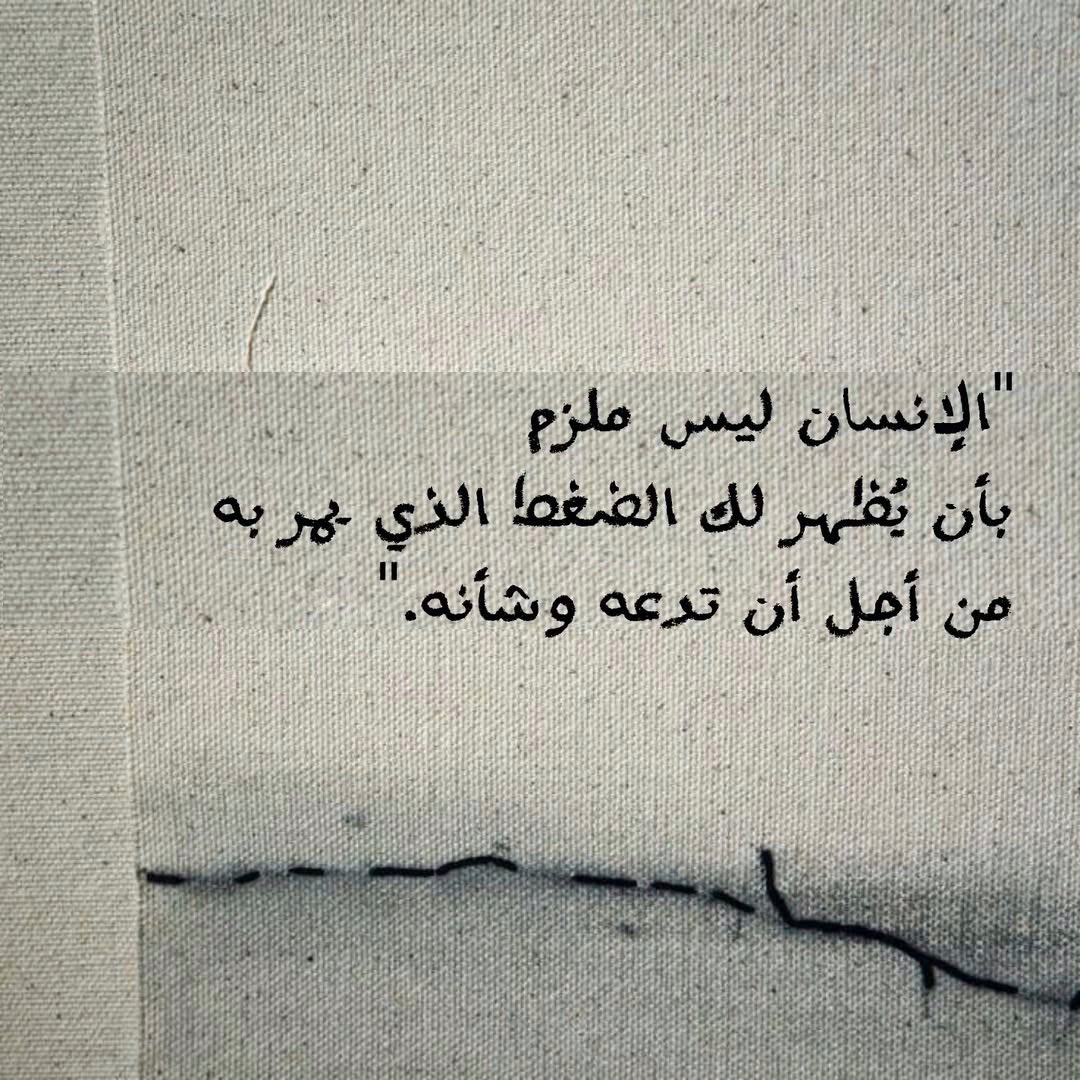 "الإنسان ليس ملزم
بأن يُظهر لك الضغط الذي يمر به
من أجل أن تدعه وشأنه."